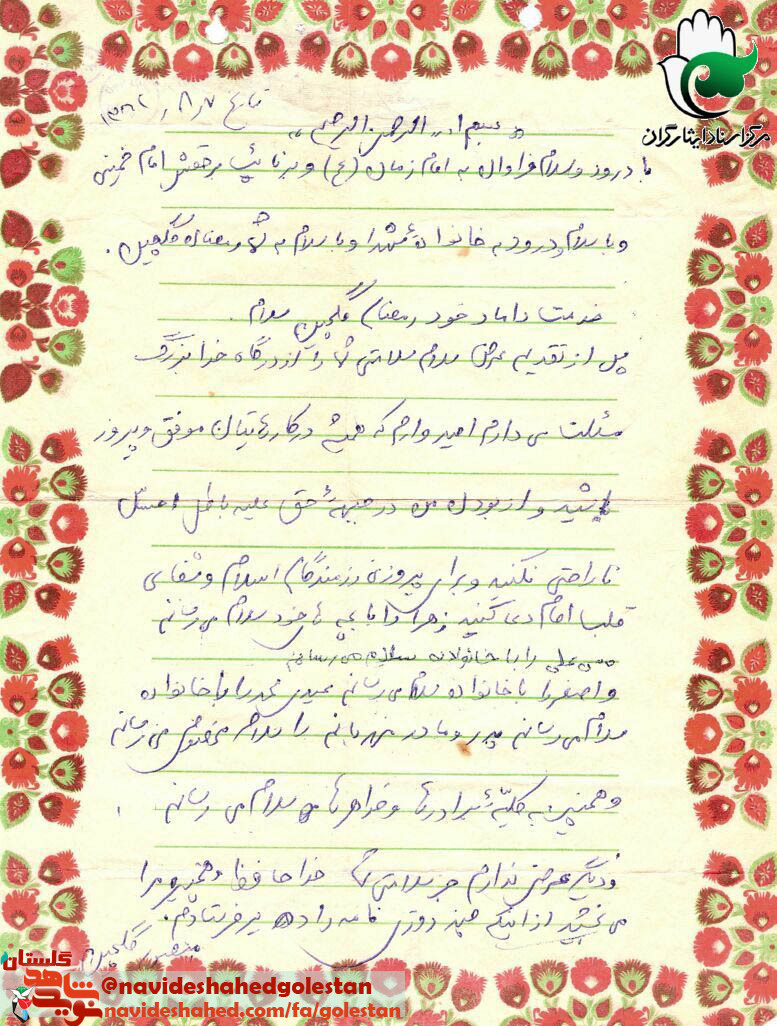 مرکز اسناد ایثارگران
تاریخ
بسم الله الرحمن الرحیم
با درود و سلام فراوان به امام زمان (ع) و به نائب برحقش امام خمینی
و با سلام و درود به خانواده شهدا و با سلام به شما رمضان گلچین.
خدمت داماد خود رمضان گلچین سلام.
پس از تقدیم عرض سلام سلامتی شما را از درگاه خدا بزرگ
مسئلت می دارم امیدوارم که همیشه در کارهایتان موفق و پیروز
باشید و از بودن من در جبهه حق علیه باطل احساس
ناراحتی نکنید و برای پیروزی رزمندگان اسلام و شفای
قلب امام دعا کنید زهرا را با بچه های خود سلام می رسانم
علی را با خانواده سلام می رسانم
و اصغر را با خانواده سلام می رسانم عیدی محمد را با خانواده
سلام می رسانم پدر و مادر مهربانم را سلام مخصوص می رسانم
و همچنین به کلیه برادرها و خواهرها سلام می رسانم
و دیگر عرضی ندارم جز سلامتی شما خدا حافظ و همچنین مرا
می بخشید از اینکه چند وقتی نامه را دیر فرستادم.
منصور گلچین
گلستان
نوید شاهد
@navideshahedgolestan
navideshahed.com/fa/golestan